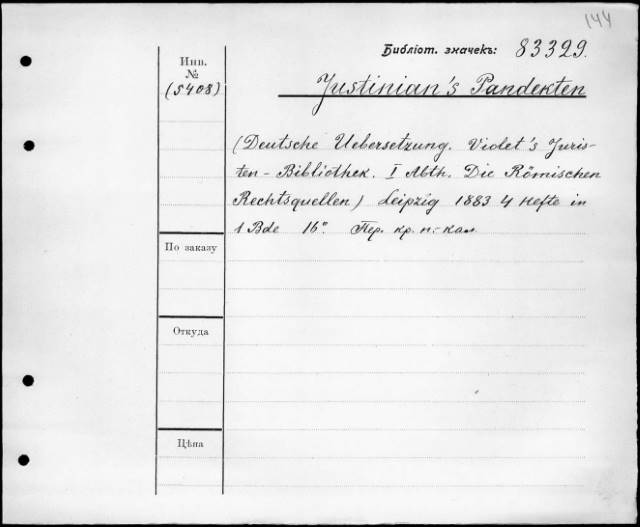 144
Библіот. значекъ: 83329.
Инв.
№
(5408)
Justinian's Pandekten
(Deutsche Uebersetzung. Violet's Juris-
ten-Bibliothek. I Abth. Die Römischen
Rechtsquellen) Leipzig 1883 4 Hefte in
1 Bde 16°. Пер. кр. п.-кал
По заказу
Откуда
Цѣна